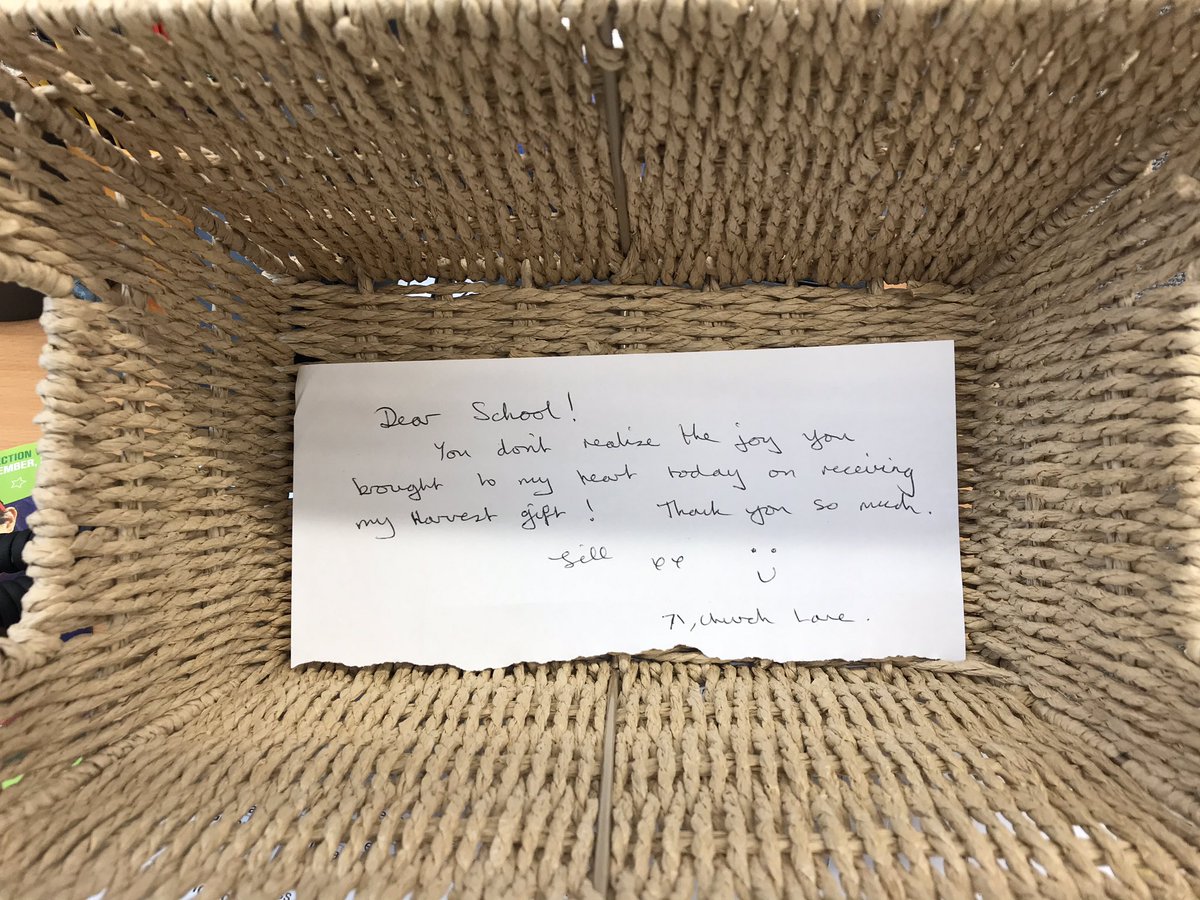 Dear School!
You don't realise the joy you
brought to my heart today on receiving
my Harvest gift! Thank you so much.
xx
71, Church Lane.
ECTION
EMBER,